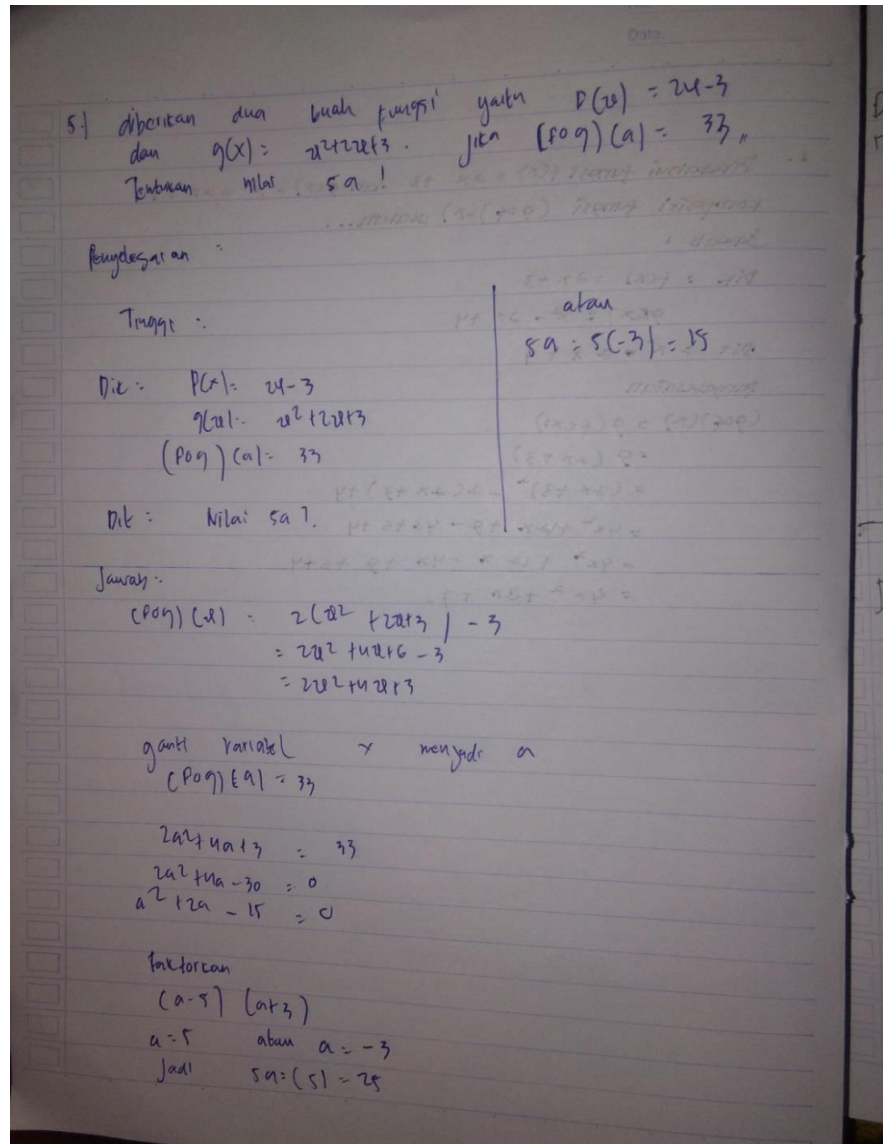 Data:
5.) diberikan dua buah fungsi yaitu f(x) = 2x-3
dan g(x) = x²+2x+3. jika (fog)(a) = 33,,
Tentukan nilai 5a!
Penyelesaian :
Tinggi :
Dik : f(x) = 2x-3
g(x) = x²+2x+3
(fog)(a) = 33
Dit : Nilai 5a?
Jawab :
(fog)(x) = 2(x²+2x+3) - 3
= 2x²+4x+6 - 3
= 2x²+4x+3
ganti variabel x menjadi a
(fog)(a) = 33
2a²+4a+3 = 33
2a²+4a-30 = 0
a²+2a - 15 = 0
faktorcan
(a-5) (a+3)
a=5 atau a=-3
Jadi 5a=(5)=25
atau
5a = 5(-3) = 15.